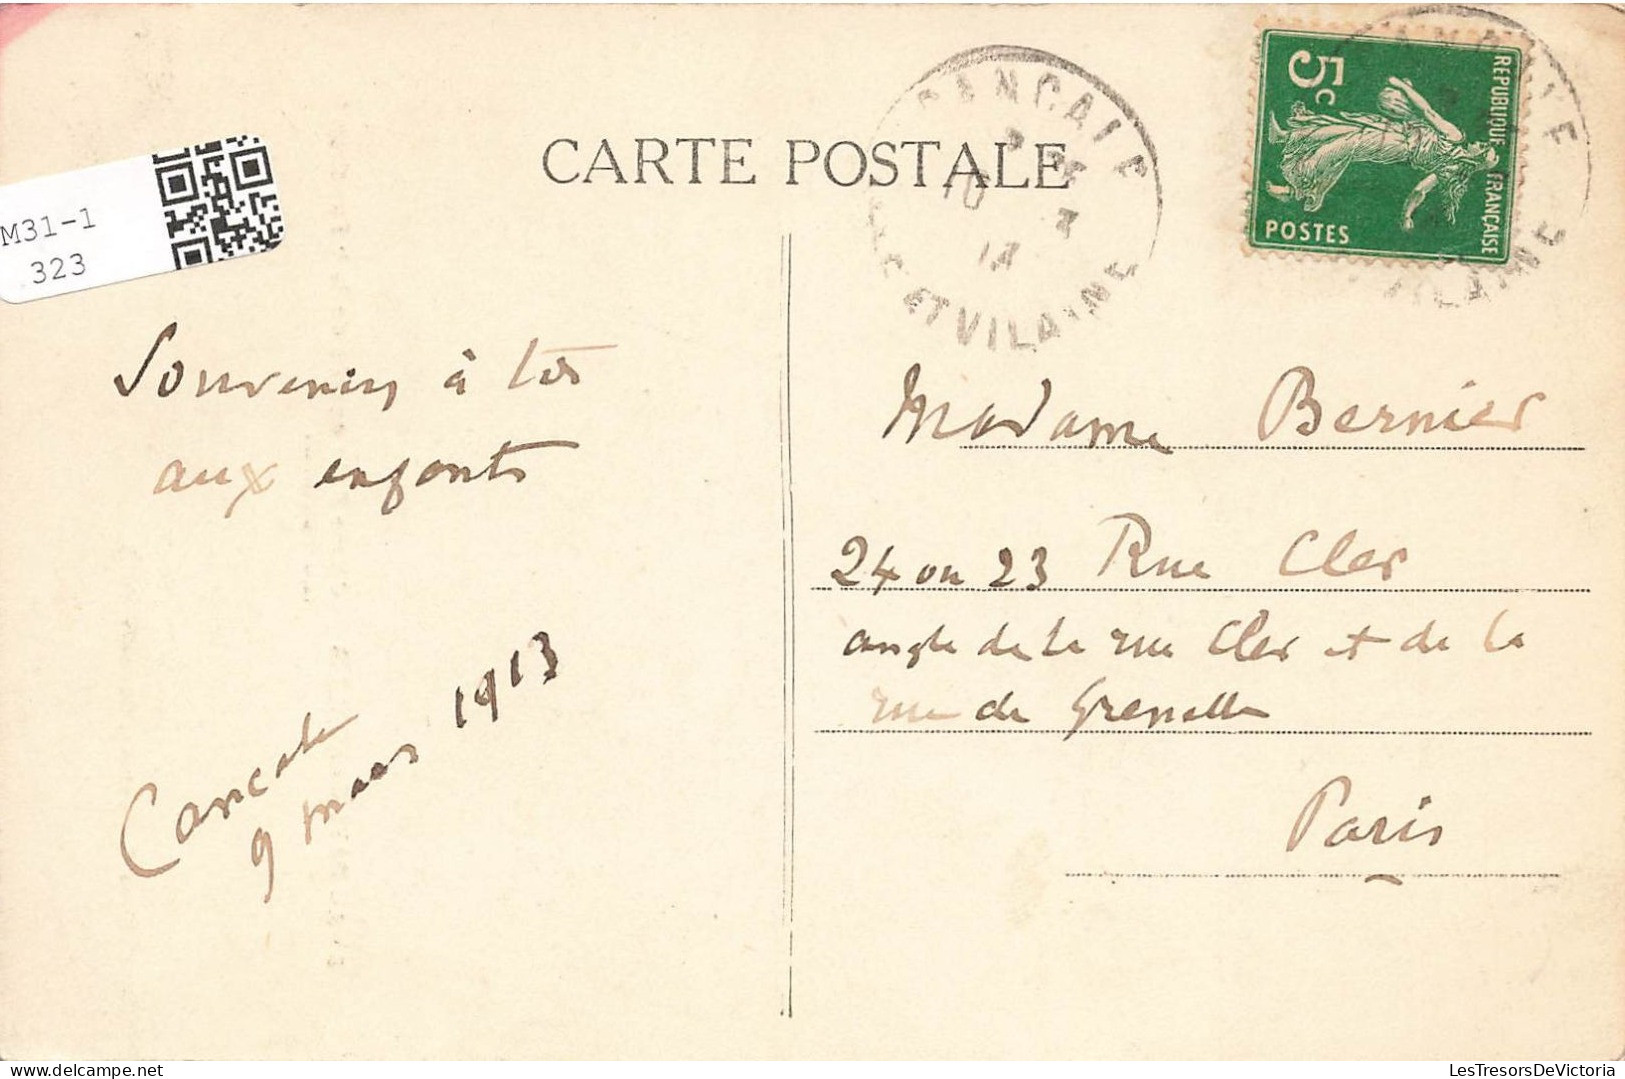 CARTE POSTALE
CANCALE
10 3
13
ET VILAINE
5c
REPUBLIQUE FRANÇAISE
POSTES
VILAINE
M31-1
323
Souvenirs à
aux enfants
Cancale
9 mars 1913
Madame Bernier
24 ou 23 Rue Cler
angle de la rue Cler et de la
rue de Grenelle
Paris
LesTresorsDeVictoria